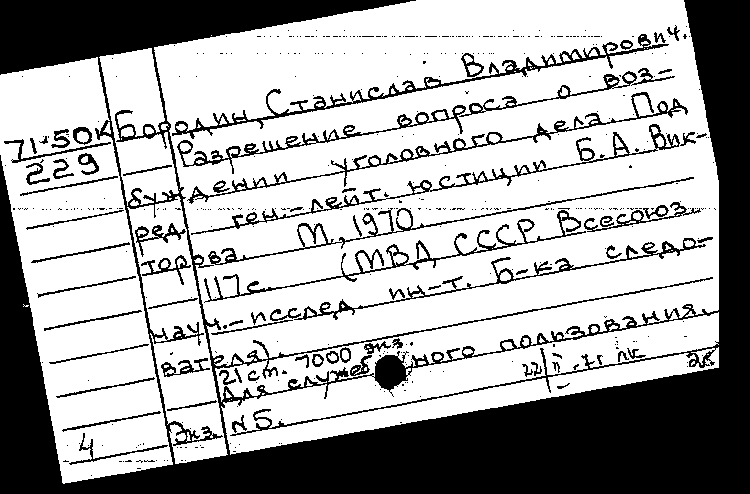 71-50К Бородин, Станислав Владимирович.
229 Разрешение вопроса о воз-
буждении уголовного дела. Под
ред. ген.-лейт. юстиции Б. А. Вик-
торова. М., 1970.
117 с. (МВД СССР. Всесоюз.
науч.-исслед. ин-т. Б-ка следо-
вателя).
21 см. 7000 экз.
Для служебного пользования.
Экз. №5.
22/II-71г
4